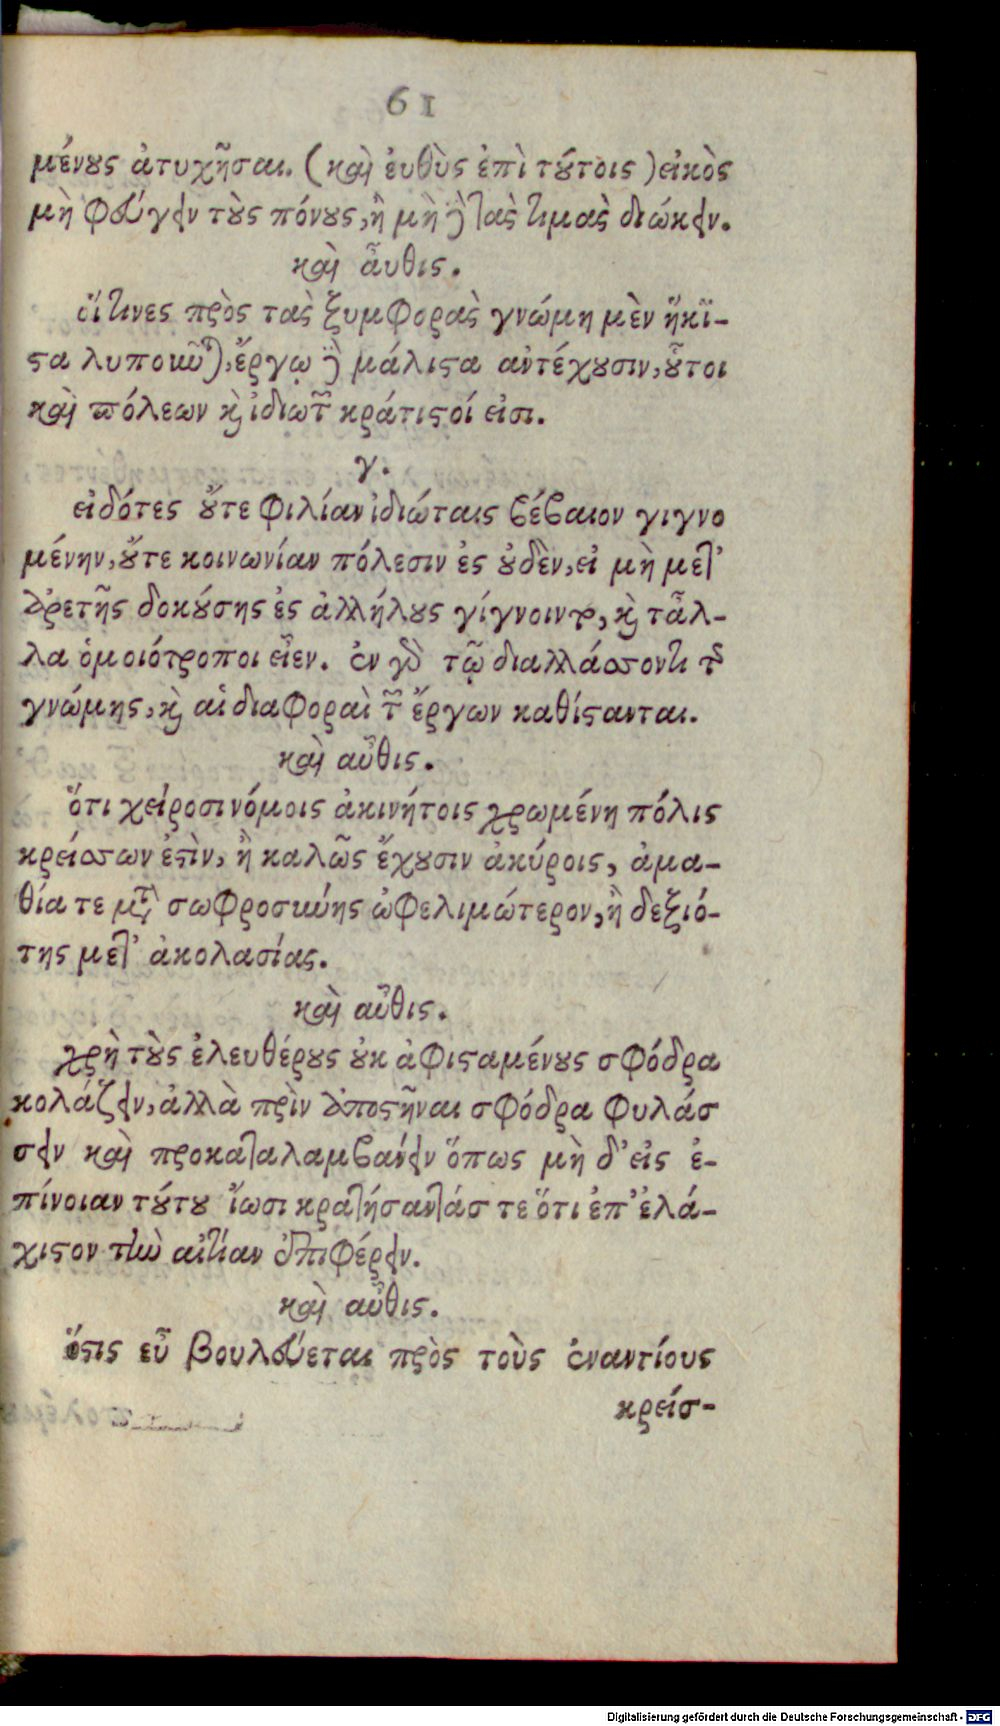 61
μένȣς ἀτυχῆσαι. (καὶ ἐυθὺς ἐπὶ τȣ́τοις) εἰκὸς
μὴ φεύγειν τȣ̀ς πόνȣς, ἢ μὴ δὲ τὰς τιμὰς διώκειν.
καὶ ἆυθις.
οἵτινες πρὸς τὰς ξυμφορὰς γνώμη μὲν ἥκϊ-
ϛα λυποῦνται, ἔργῳ δὲ μάλιϛα ἀντέχȣσιν, ȣ̃τοι
καὶ πόλεων κ̀ ἰδιωτῶν κράτιϛοί εἰσι.
γ.
εἰδότες ȣ̓́τε φιλίαν ἰδιώταις βέβαιον γιγνο
μένην, ȣ̓́τε κοινωνίαν πόλεσιν ἐς ȣ̓δὲν, εἰ μὴ μετ’
ἀρετῆς δοκȣ́σης ἐς ἀλλήλȣς γίγνοιντο, κ̀ τἆλ-
λα ὁμοιότροποι εἶεν. ἐν γὰρ τῷ διαλλάσσοντι τῆς
γνώμης, κ̀ αἱ διαφοραὶ τῶν ἔργων καθίϛανται.
καὶ αὖθις.
ὅτι χείροσι νόμοις ἀκινήτοις χρωμένη πόλις
κρείσσων ἐϛὶν, ἢ καλῶς ἔχȣσιν ἀκύροις, ἀμα-
θία τε μετὰ σωφροσύνης ὠφελιμώτερον, ἢ δεξιό-
της μετ’ ἀκολασίας.
καὶ αὖθις.
χρὴ τȣ̀ς ἐλευθέρȣς ȣ̓κ ἀφιϛαμένȣς σφόδρα
κολάζειν, ἀλλὰ πρὶν ἀποϛῆναι σφόδρα φυλάσ
σειν καὶ προκαταλαμβάνειν ὅπως μὴ δ’ εἰς ἐ-
πίνοιαν τȣ́τȣ ἴωσι κρατήσαντάσ τε ὅτι ἐπ’ ἐλά-
χιϛον τὴν αἰτίαν ἐπιφέρειν.
καὶ αὖθις.
ὅϛις εὖ βουλεύεται πρὸς τοὺς ἐναντίους
κρείσ-
Digitalisierung gefördert durch die Deutsche Forschungsgemeinschaft - DFG